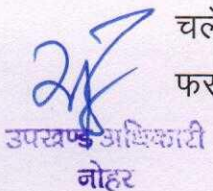 चले
फस
उपखण्ड अधिकारी
नोहर